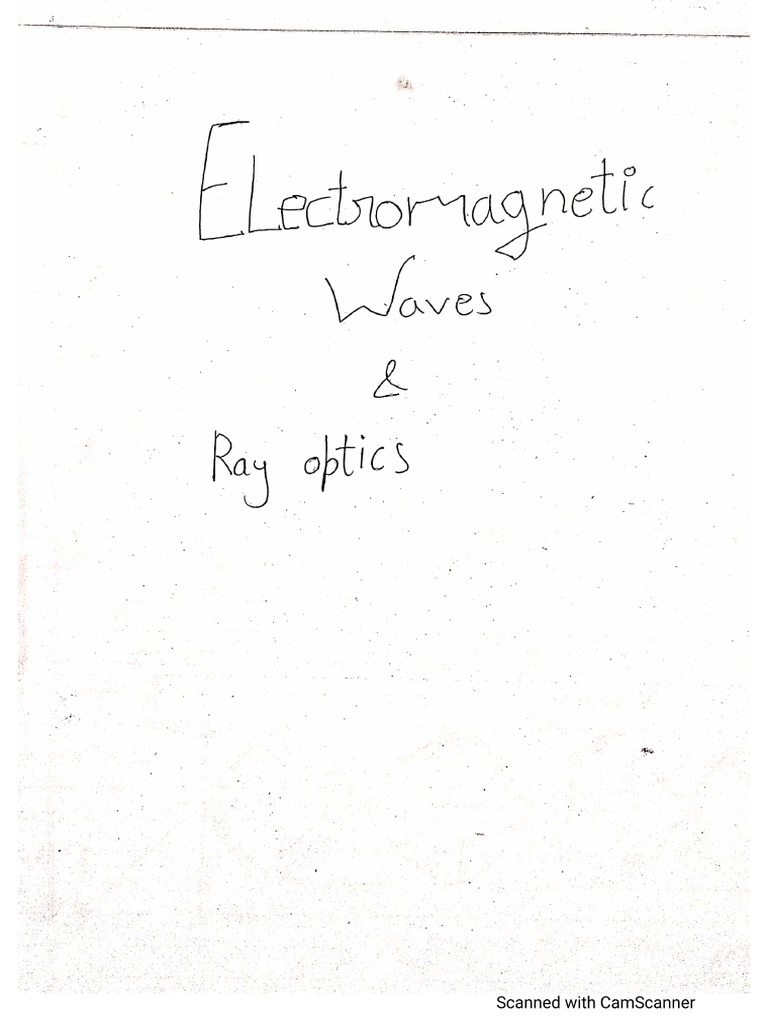 Electromagnetic
Waves
&
Ray optics
Scanned with CamScanner